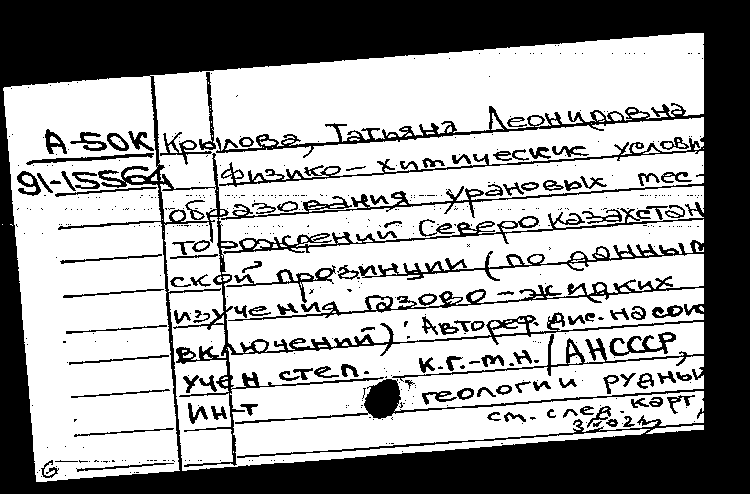 А-50К Крылова, Татьяна Леонидовна
91-15564 Физико-химические услови
образования урановых мес-
торождений Северо Казахстан
ской провинции (по данным
изучения газово-жидких
включений): Автореф. дис. на соис
учен. степ. к.г.-м.н. / АН СССР,
Ин-т геологии рудны
см. след. карт.